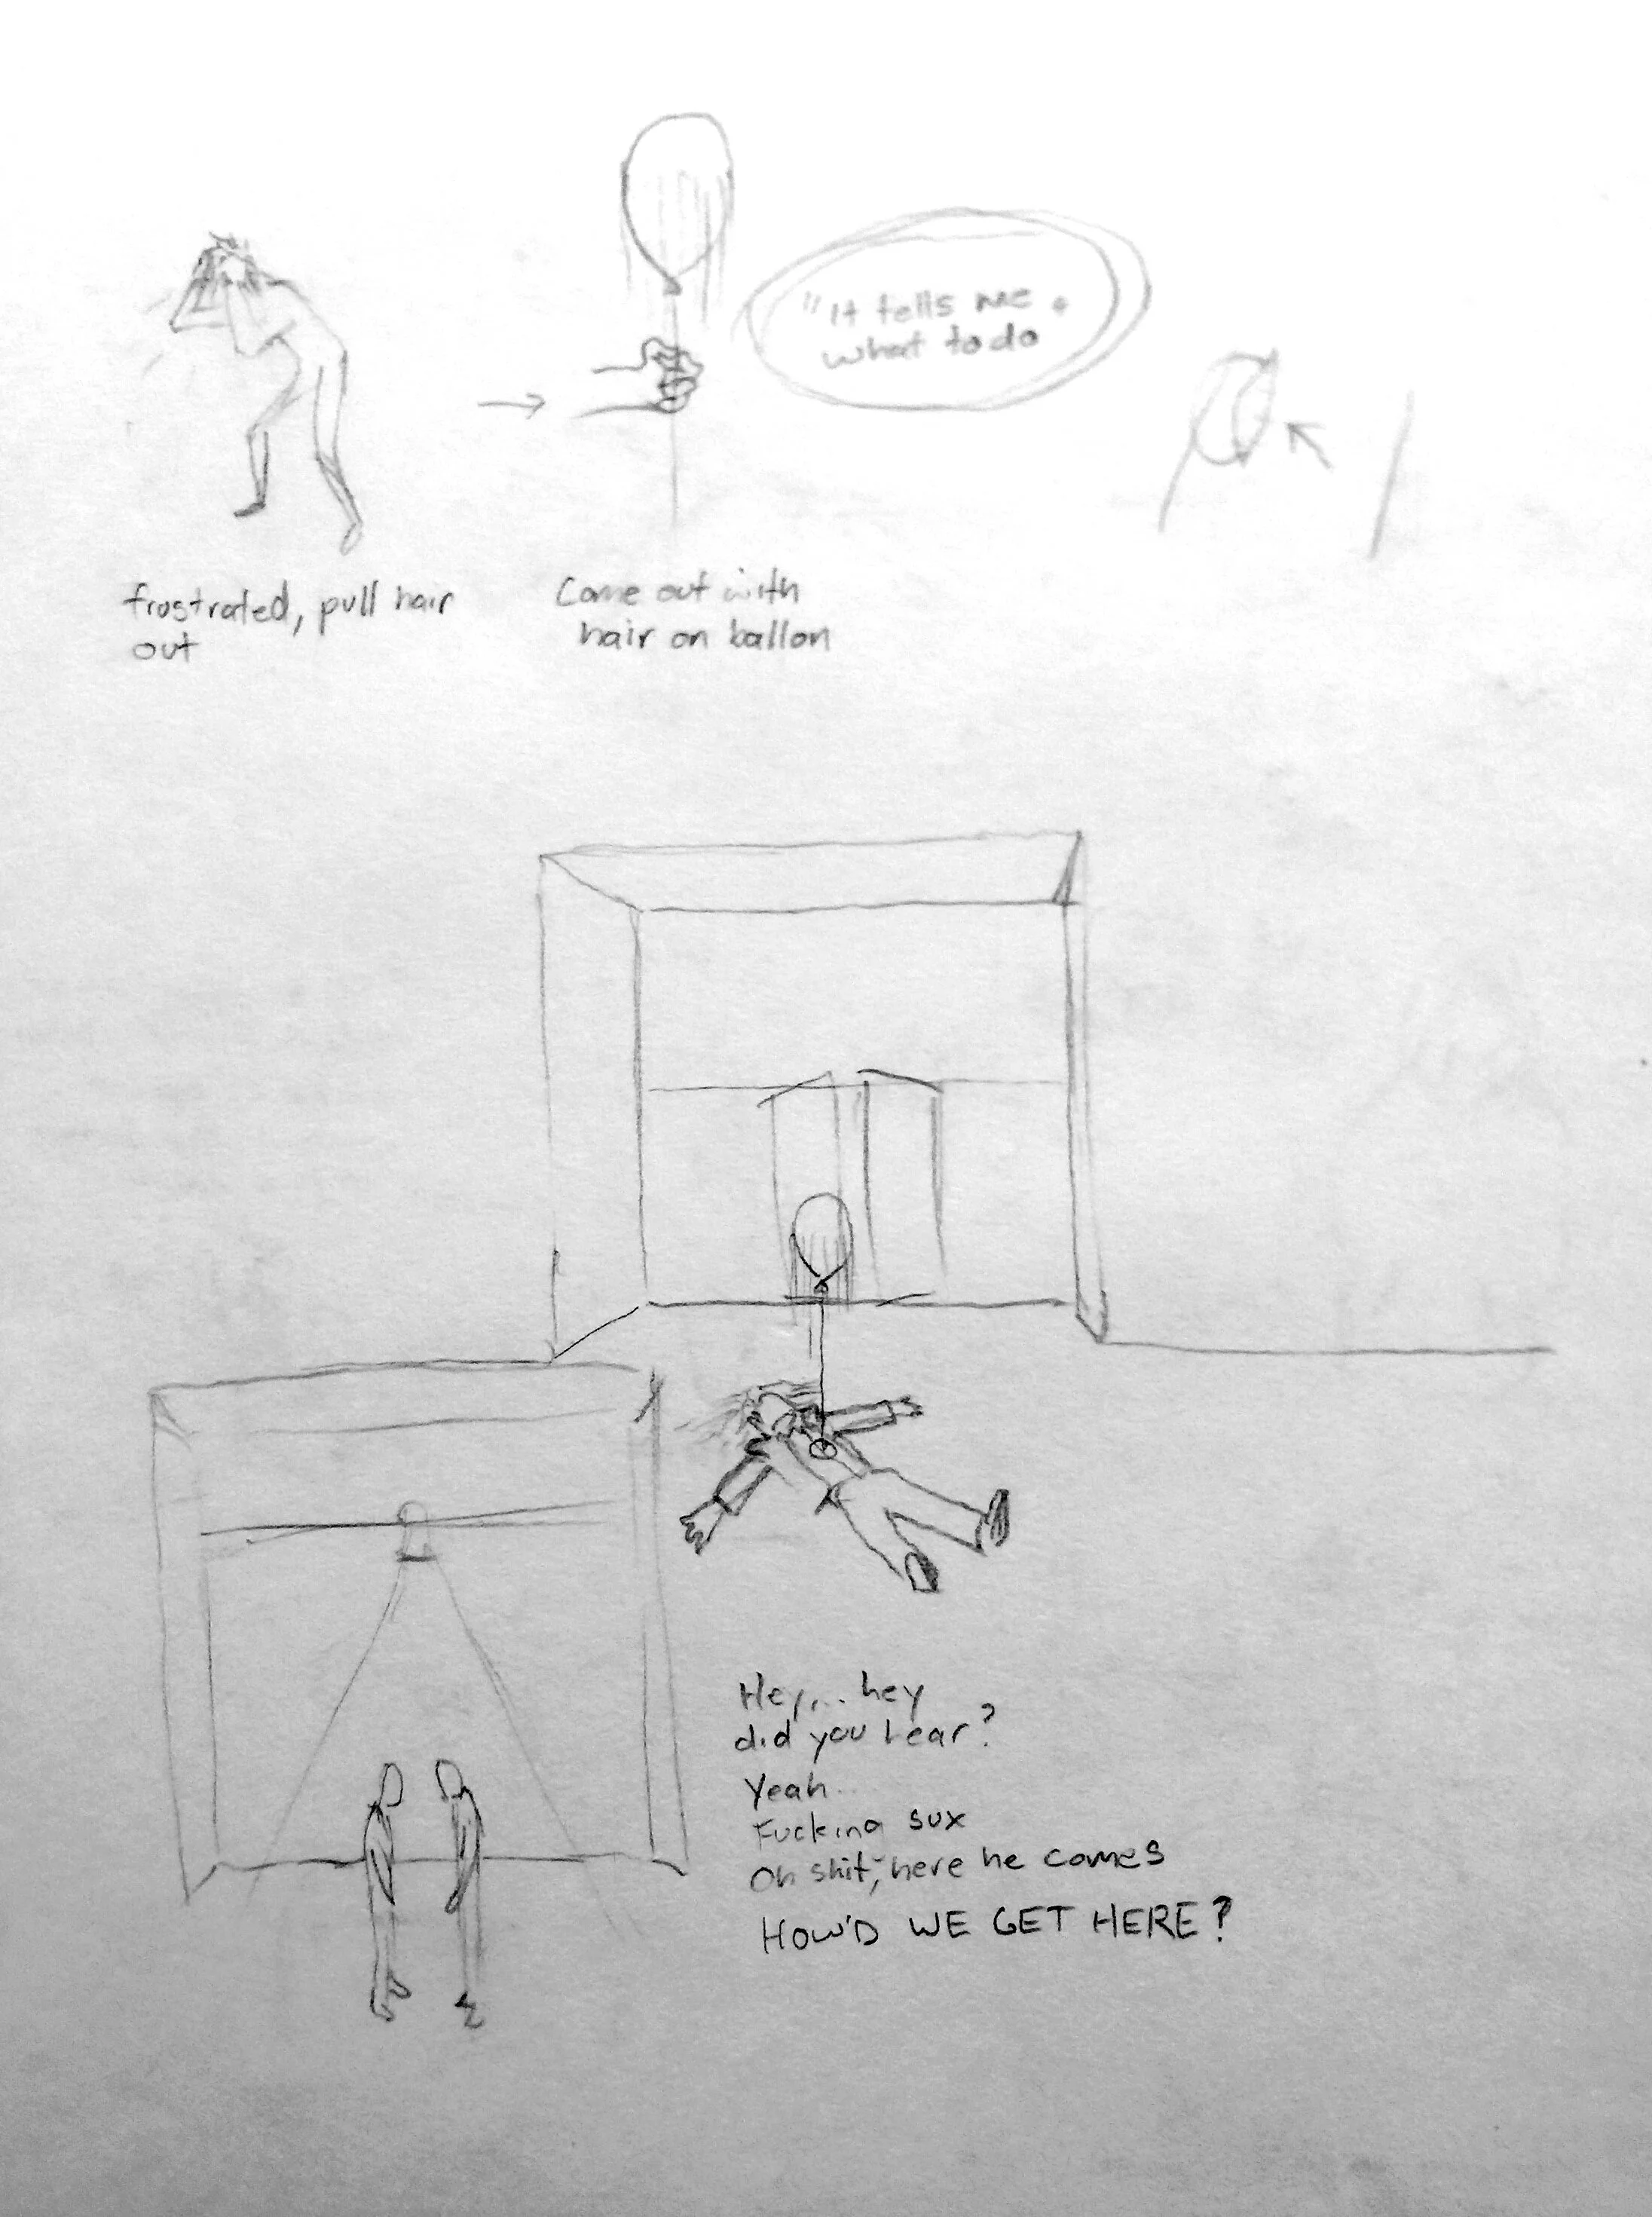 "It tells me
what to do
frustrated, pull hair
out
Come out with
hair on ballon
Hey,... hey
did you hear?
Yeah...
Fucking sux
Oh shit, here he comes
HOW'D WE GET HERE?